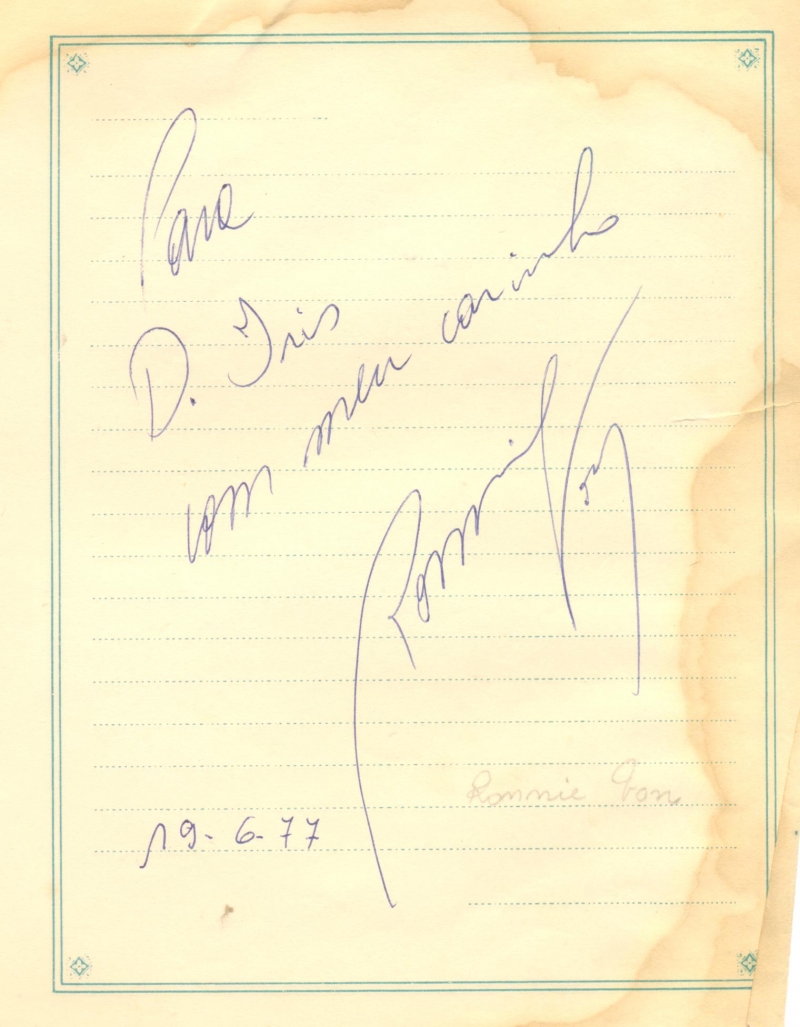 Para
D. Iris
com meu carinho
Ronnie Von
Ronnie Von
19-6-77